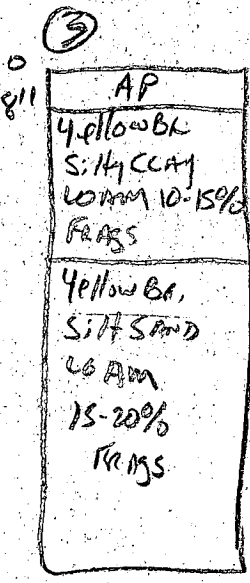 3
0
AP
8"
Yellow BR
Silty CLAY
LOAM 10-15%
FRAGS
Yellow BR.
Silt SAND
LOAM
15-20%
FRAGS